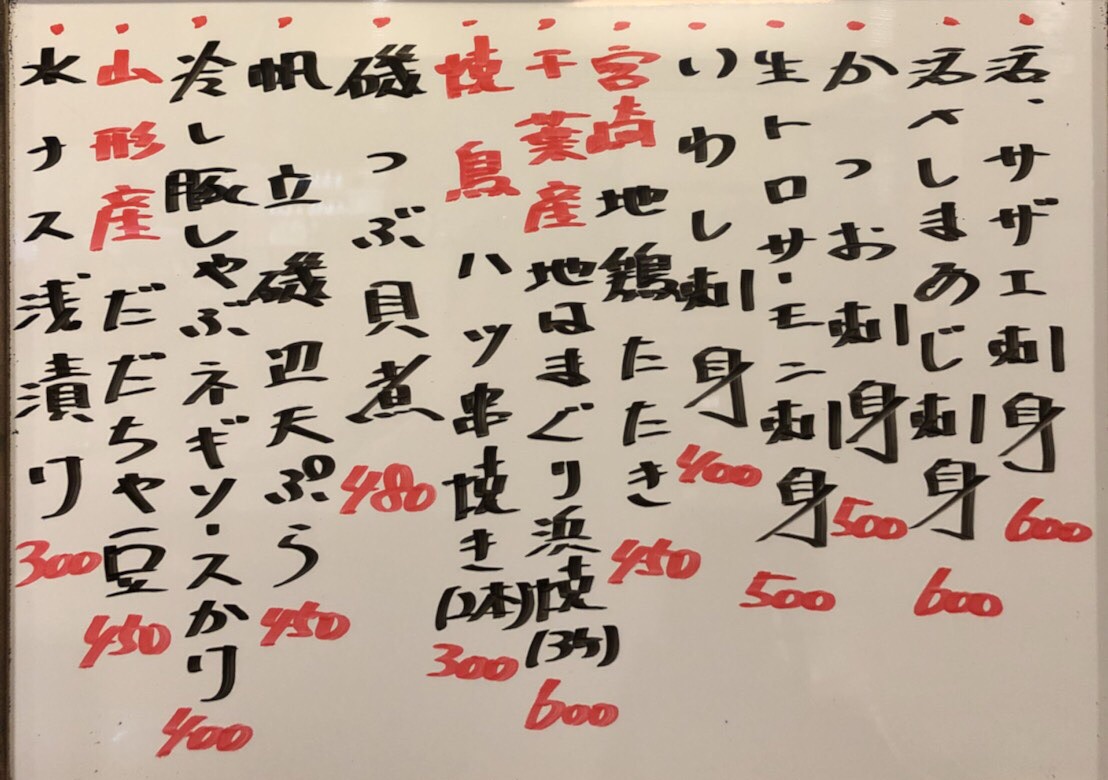 活・サザエ刺身 600
活〆しまあじ刺身 600
かつお刺身 500
生トロサーモン刺身 500
いわし刺身 400
宮崎地鶏たたき 450
千葉産地はまぐり浜焼(3ヶ) 600
焼鳥ハツ串焼き(2本) 300
磯つぶ貝煮 480
帆立磯辺天ぷら 450
冷し豚しゃぶネギソースかり 400
山形産だだちゃ豆 450
水ナス浅漬け 300